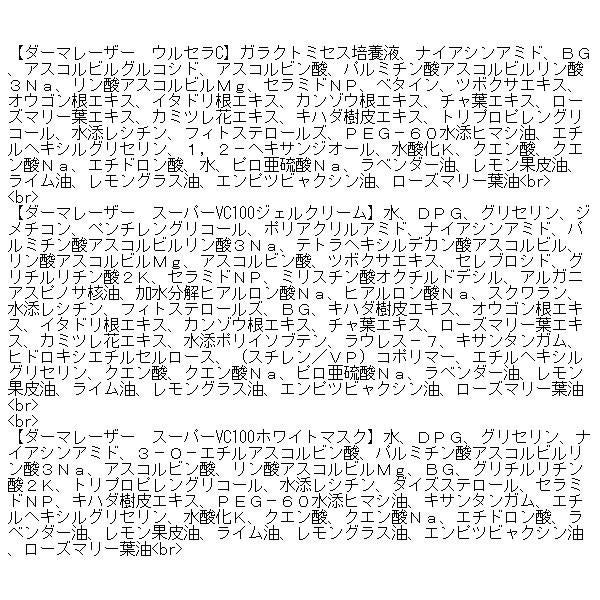 【ダーマレーザー　ウルセラC】ガラクトミセス培養液、ナイアシンアミド、ＢＧ
、アスコルビルグルコシド、アスコルビン酸、パルミチン酸アスコルビルリン酸
３Ｎａ、リン酸アスコルビルＭｇ、セラミドＮＰ、ベタイン、ツボクサエキス、
オウゴン根エキス、イタドリ根エキス、カンゾウ根エキス、チャ葉エキス、ロー
ズマリー葉エキス、カミツレ花エキス、キハダ樹皮エキス、トリプロピレングリ
コール、水添レシチン、フィトステロールズ、ＰＥＧ－６０水添ヒマシ油、エチ
ルヘキシルグリセリン、１，２－ヘキサンジオール、水酸化Ｋ、クエン酸、クエ
ン酸Ｎａ、エチドロン酸、水、ピロ亜硫酸Ｎａ、ラベンダー油、レモン果皮油、
ライム油、レモングラス油、エンピツビャクシン油、ローズマリー葉油<br>
<br>
【ダーマレーザー　スーパーVC100ジェルクリーム】水、ＤＰＧ、グリセリン、ジ
メチコン、ペンチレングリコール、ポリアクリルアミド、ナイアシンアミド、パ
ルミチン酸アスコルビルリン酸３Ｎａ、テトラヘキシルデカン酸アスコルビル、
リン酸アスコルビルＭｇ、アスコルビン酸、ツボクサエキス、セレブロシド、グ
リチルリチン酸２Ｋ、セラミドＮＰ、ミリスチン酸オクチルドデシル、アルガニ
アスピノサ核油、加水分解ヒアルロン酸Ｎａ、ヒアルロン酸Ｎａ、スクワラン、
水添レシチン、フィトステロールズ、ＢＧ、キハダ樹皮エキス、オウゴン根エキ
ス、イタドリ根エキス、カンゾウ根エキス、チャ葉エキス、ローズマリー葉エキ
ス、カミツレ花エキス、水添ポリイソブテン、ラウレス－７、キサンタンガム、
ヒドロキシエチルセルロース、（スチレン／ＶＰ）コポリマー、エチルヘキシル
グリセリン、クエン酸、クエン酸Ｎａ、ピロ亜硫酸Ｎａ、ラベンダー油、レモン
果皮油、ライム油、レモングラス油、エンピツビャクシン油、ローズマリー葉油
<br>
<br>
【ダーマレーザー　スーパーVC100ホワイトマスク】水、ＤＰＧ、グリセリン、ナ
イアシンアミド、３－Ｏ－エチルアスコルビン酸、パルミチン酸アスコルビルリ
ン酸３Ｎａ、アスコルビン酸、リン酸アスコルビルＭｇ、ＢＧ、グリチルリチン
酸２Ｋ、トリプロピレングリコール、水添レシチン、ダイズステロール、セラミ
ドＮＰ、キハダ樹皮エキス、ＰＥＧ－６０水添ヒマシ油、キサンタンガム、エチ
ルヘキシルグリセリン、水酸化Ｋ、クエン酸、クエン酸Ｎａ、エチドロン酸、ラ
ベンダー油、レモン果皮油、ライム油、レモングラス油、エンピツビャクシン油
、ローズマリー葉油<br>